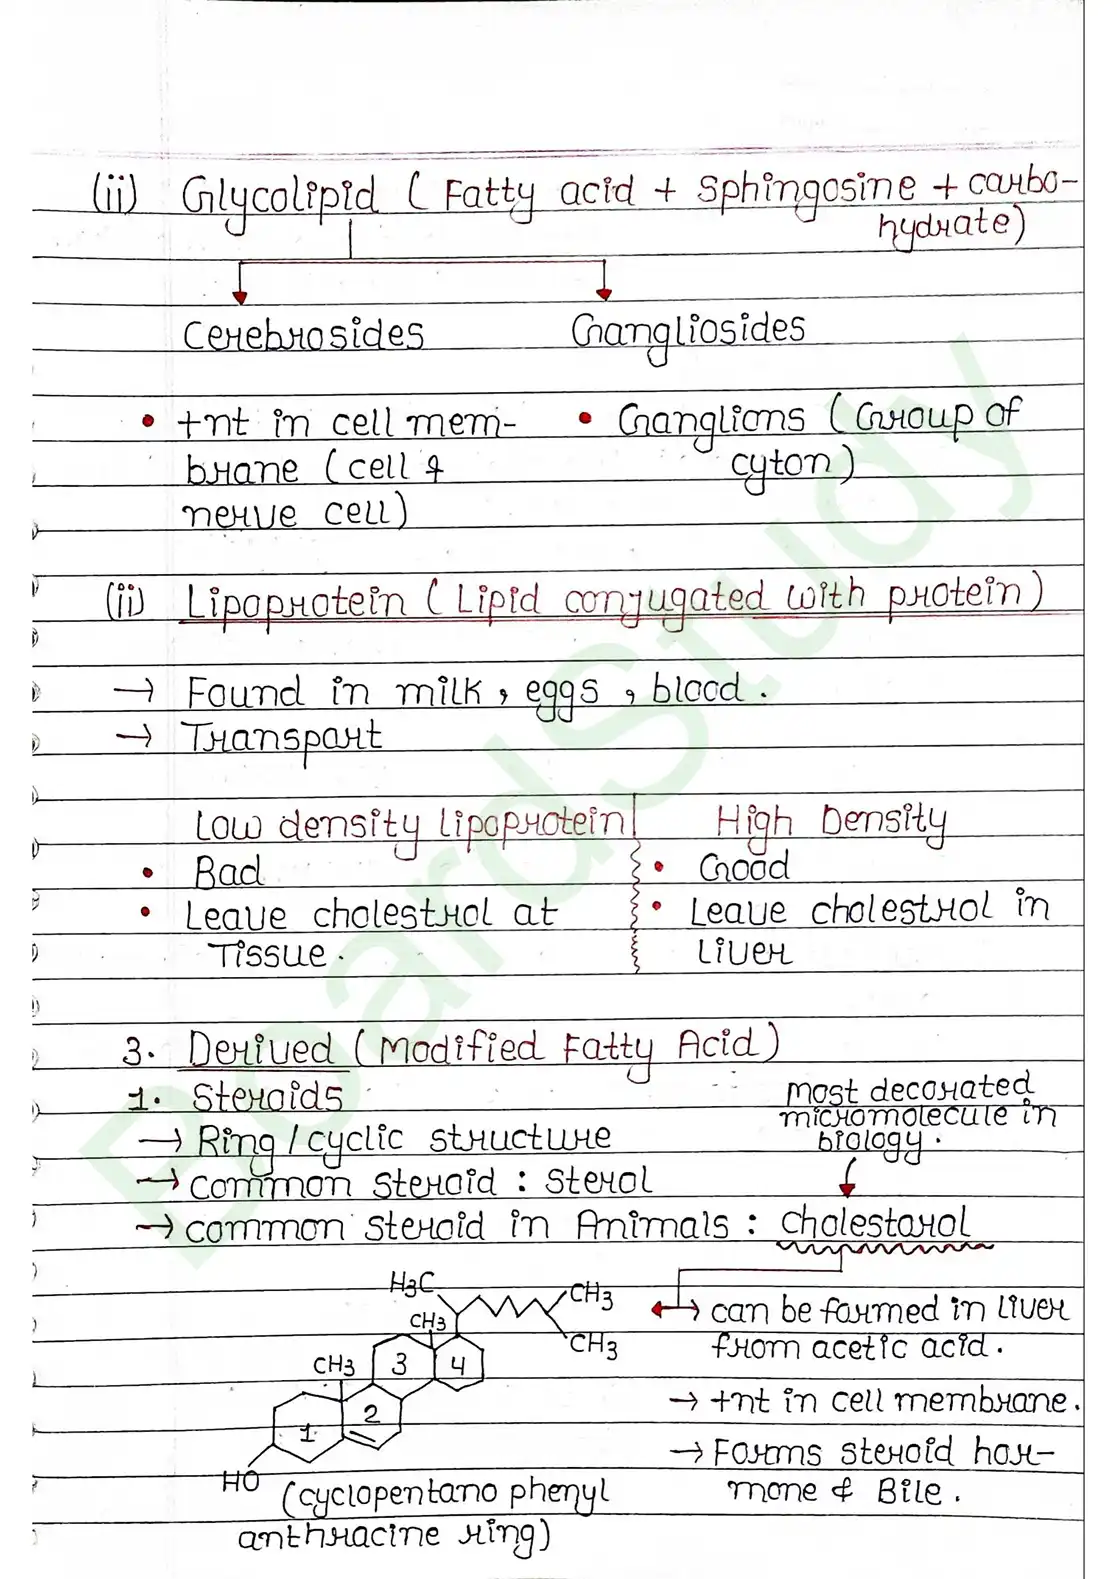 (ii) Glycolipid ( Fatty acid + Sphingosine + carbo-
hydrate)
Cerebrosides Gangliosides
• +nt in cell mem-
brane ( cell &
nerve cell)
• Ganglions ( Group of
cyton )
(ii) Lipoprotein ( Lipid conjugated with protein )
→ Found in milk, eggs, blood.
→ Transport
Low density lipoprotein
• Bad
• Leave cholestrol at
Tissue.
High Density
• Good
• Leave cholestrol in
Liver
3. Derived ( Modified Fatty Acid )
1. Steroids
→ Ring / cyclic structure
→ common steroid : Sterol
→ common steroid in Animals : cholestorol
most decorated
micromolecule in
biology.
H3C
CH3
CH3
CH3
CH3
1 2 3 4
HO
(cyclopentano phenyl
anthracine ring)
→ can be formed in liver
from acetic acid.
→ +nt in cell membrane.
→ Forms steroid hor-
mone & Bile.
BoardStudy